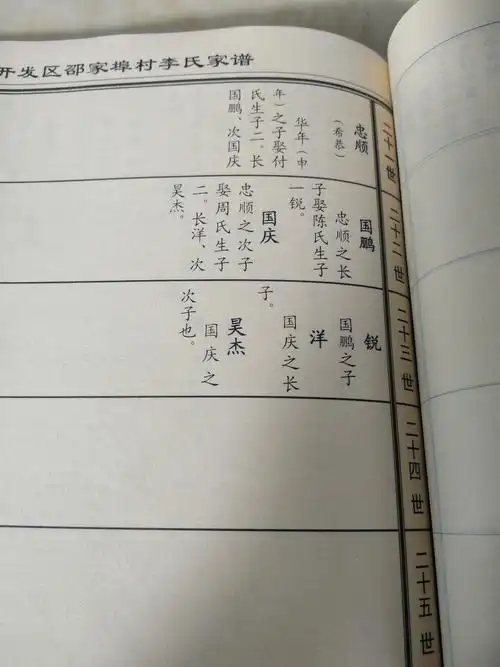 开发区邵家埠村李氏家谱
二十一世
忠顺
（希恭）
华年（申
年）之子娶付
氏生子二。长
国鹏、次国庆
二十二世
国鹏
忠顺之长
子娶陈氏生子
一锐。
国庆
忠顺之次子
娶周氏生子
二。长洋、次
昊杰。
二十三世
锐
国鹏之子
洋
国庆之长
子。
昊杰
国庆之
次子也。
二十四世
二十五世